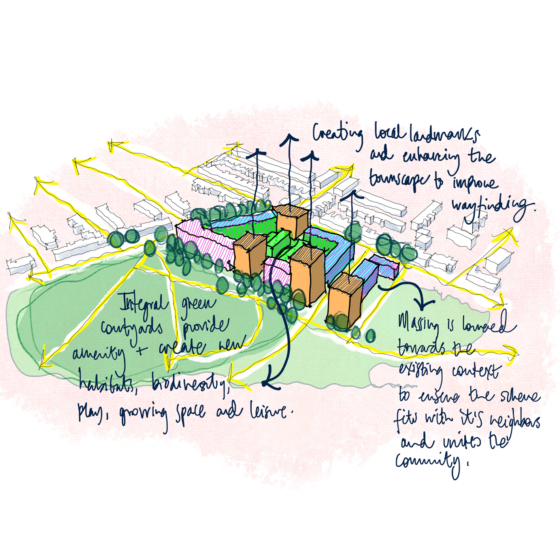 Creating local landmarks
and enhancing the
townscape to improve
wayfinding.
Integral green
courtyards provide
amenity + create new
habitats, biodiversity,
play, growing space and leisure.
Massing is lowered
towards the
existing context
to ensure the scheme
fits with it's neighbors
and unites the
community.